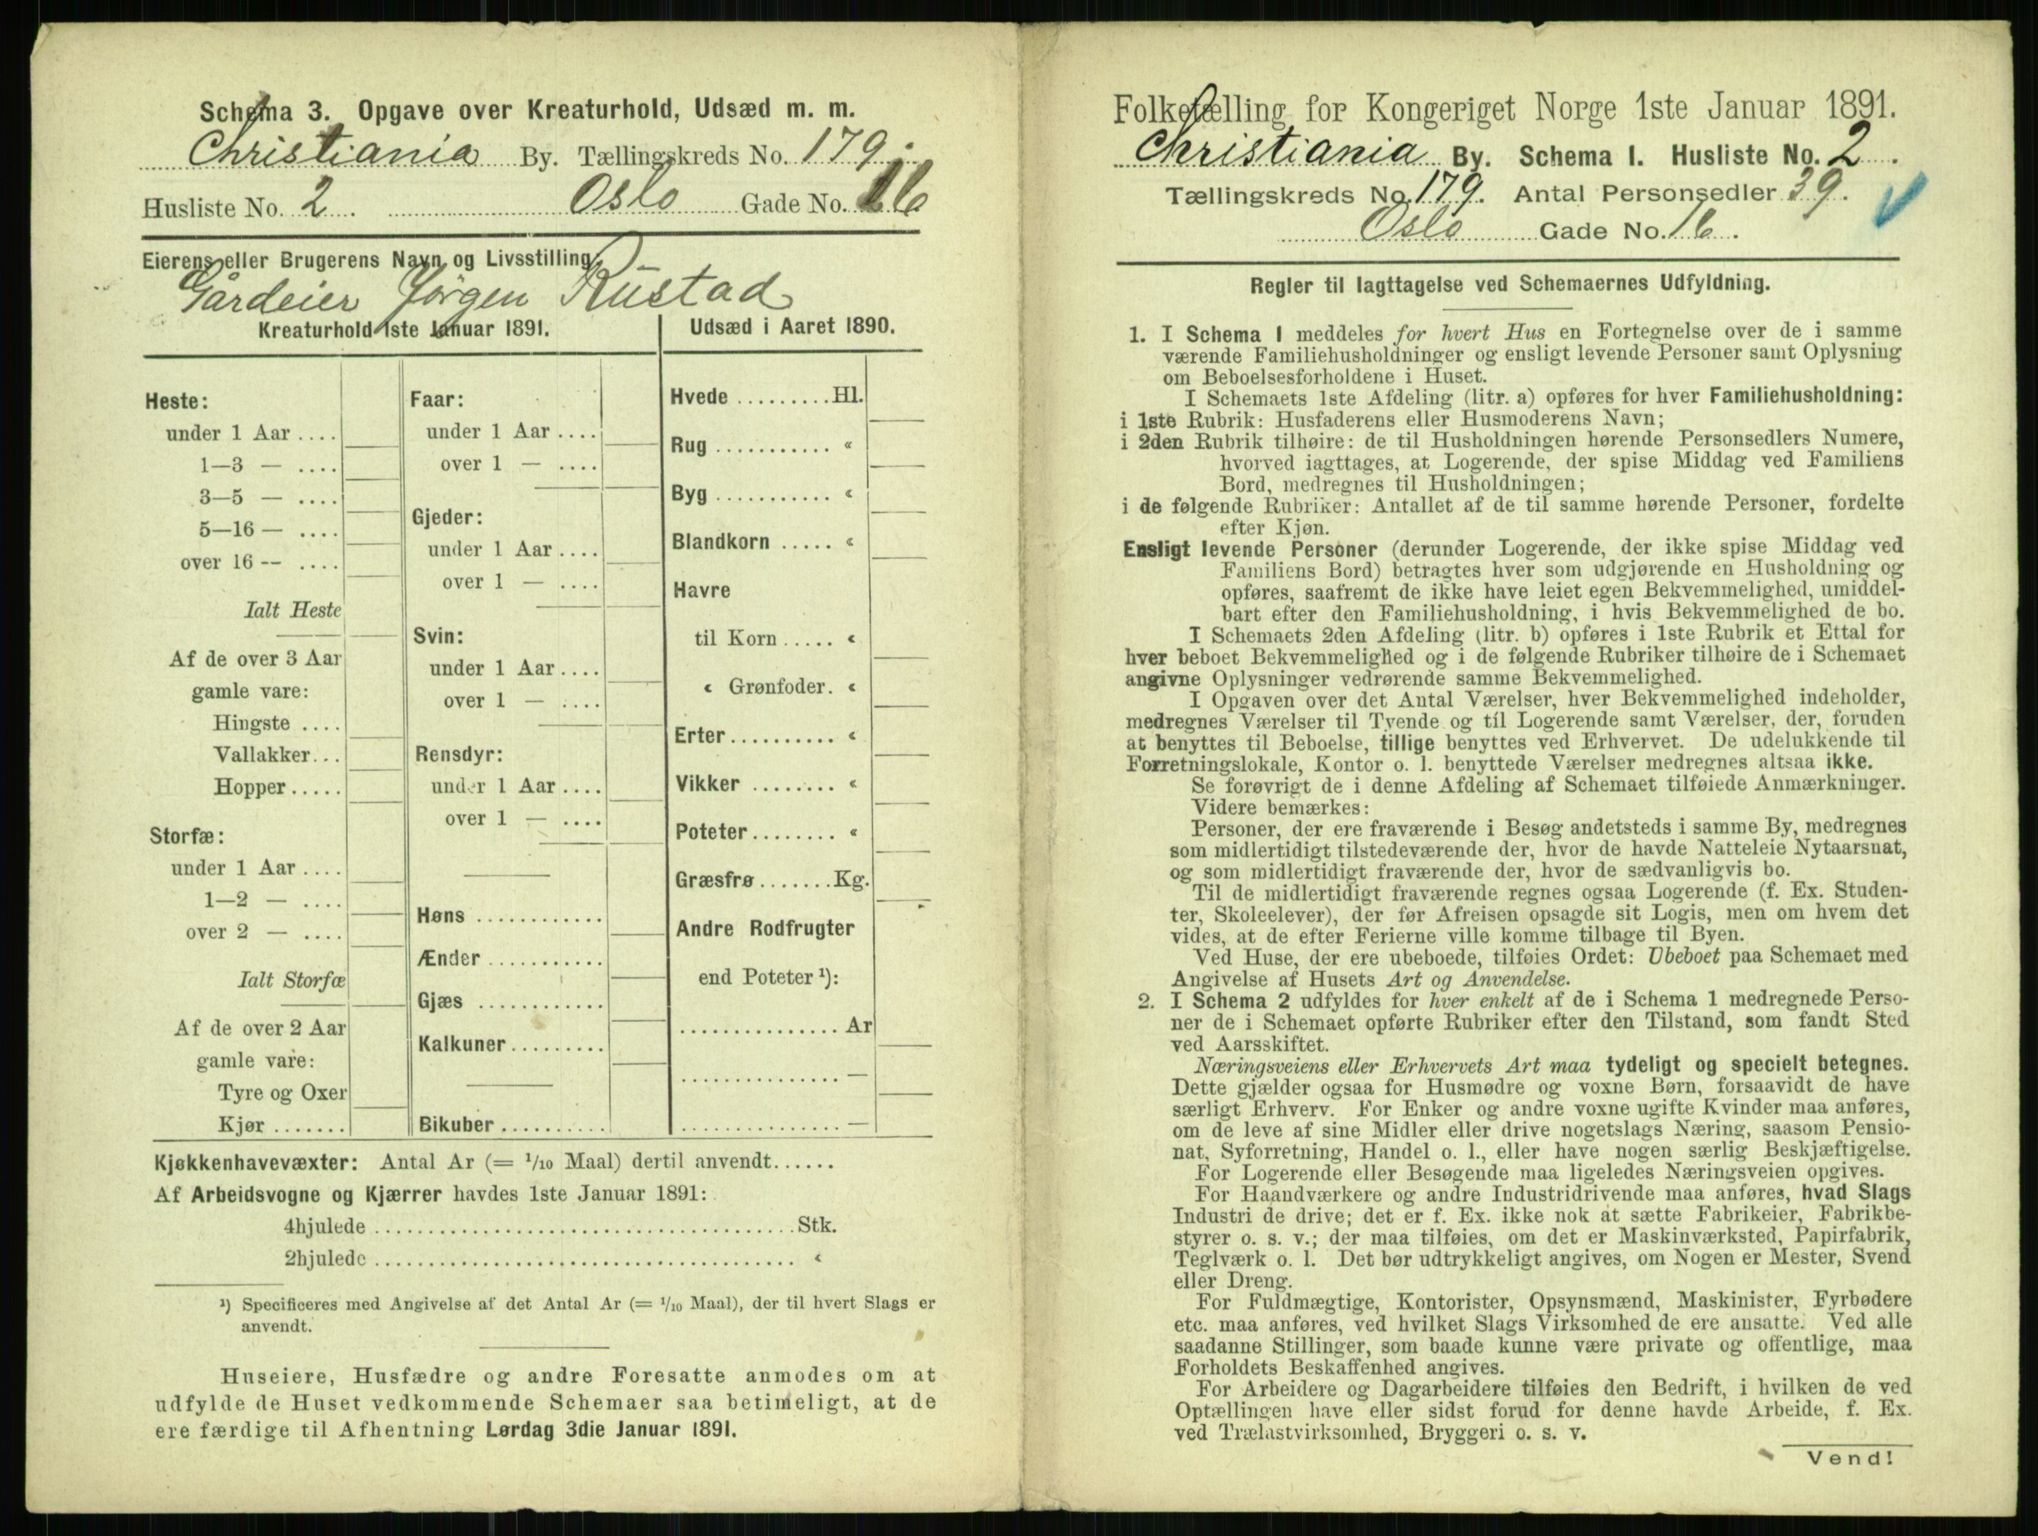 Schema 3. Opgave over Kreaturhold, Udsæd m. m.
Christiania By. Tællingskreds No. 179.
Husliste No. 2. Oslo Gade No. 16
Eierens eller Brugerens Navn og Livsstilling
Gårdeier Jørgen Rustad
Kreaturhold 1ste Januar 1891.
Heste:
under 1 Aar ....
1—3 — ....
3—5 — ....
5—16 — ....
over 16 -- ....
Ialt Heste
Af de over 3 Aar
gamle vare:
Hingste ....
Vallakker...
Hopper.....
Storfæ:
under 1 Aar ....
1—2 — ....
over 2 — ....
Ialt Storfæ
Af de over 2 Aar
gamle vare:
Tyre og Oxer
Kjør .......
Faar:
under 1 Aar ....
over 1 — ....
Gjeder:
under 1 Aar ....
over 1 — ....
Svin:
under 1 Aar ....
over 1 — ....
Rensdyr:
under 1 Aar ....
over 1 — ....
Høns ............
Ænder ...........
Gjæs ............
Kalkuner.........
Bikuber ..........
Udsæd i Aaret 1890.
Hvede .........Hl.
Rug ........... «
Byg ........... «
Blandkorn ..... «
Havre
til Korn ..... «
« Grønfoder. «
Erter.......... «
Vikker ........ «
Poteter........ «
Græsfrø.......Kg.
Andre Rodfrugter
end Poteter ¹):
............... Ar
............... —
............... —
Kjøkkenhavevæxter: Antal Ar (= 1/10 Maal) dertil anvendt......
Af Arbeidsvogne og Kjærrer havdes 1ste Januar 1891:
4hjulede ....................................... Stk.
2hjulede ....................................... «
¹) Specificeres med Angivelse af det Antal Ar (= 1/10 Maal), der til hvert Slags er
anvendt.
Huseiere, Husfædre og andre Foresatte anmodes om at
udfylde de Huset vedkommende Schemaer saa betimeligt, at de
ere færdige til Afhentning Lørdag 3die Januar 1891.
Folketælling for Kongeriget Norge 1ste Januar 1891.
Christiania By. Schema 1. Husliste No. 2.
Tællingskreds No. 179. Antal Personsedler 39.
Oslo Gade No. 16.
Regler til Iagttagelse ved Schemaernes Udfyldning.
1. I Schema 1 meddeles for hvert Hus en Fortegnelse over de i samme
værende Familiehusholdninger og ensligt levende Personer samt Oplysning
om Beboelsesforholdene i Huset.
I Schemaets 1ste Afdeling (litr. a) opføres for hver Familiehusholdning:
i 1ste Rubrik: Husfaderens eller Husmoderens Navn;
i 2den Rubrik tilhøire: de til Husholdningen hørende Personsedlers Numere,
hvorved iagttages, at Logerende, der spise Middag ved Familiens
Bord, medregnes til Husholdningen;
i de følgende Rubriker: Antallet af de til samme hørende Personer, fordelte
efter Kjøn.
Ensligt levende Personer (derunder Logerende, der ikke spise Middag ved
Familiens Bord) betragtes hver som udgjørende en Husholdning og
opføres, saafremt de ikke have leiet egen Bekvemmelighed, umiddel-
bart efter den Familiehusholdning, i hvis Bekvemmelighed de bo.
I Schemaets 2den Afdeling (litr. b) opføres i 1ste Rubrik et Ettal for
hver beboet Bekvemmelighed og i de følgende Rubriker tilhøire de i Schemaet
angivne Oplysninger vedrørende samme Bekvemmelighed.
I Opgaven over det Antal Værelser, hver Bekvemmelighed indeholder,
medregnes Værelser til Tyende og til Logerende samt Værelser, der, foruden
at benyttes til Beboelse, tillige benyttes ved Erhvervet. De udelukkende til
Forretningslokale, Kontor o. l. benyttede Værelser medregnes altsaa ikke.
Se forøvrigt de i denne Afdeling af Schemaet tilføiede Anmærkninger.
Videre bemærkes:
Personer, der ere fraværende i Besøg andetsteds i samme By, medregnes
som midlertidigt tilstedeværende der, hvor de havde Natteleie Nytaarsnat,
og som midlertidigt fraværende der, hvor de sædvanligvis bo.
Til de midlertidigt fraværende regnes ogsaa Logerende (f. Ex. Studen-
ter, Skoleelever), der før Afreisen opsagde sit Logis, men om hvem det
vides, at de efter Ferierne ville komme tilbage til Byen.
Ved Huse, der ere ubeboede, tilføies Ordet: Ubeboet paa Schemaet med
Angivelse af Husets Art og Anvendelse.
2. I Schema 2 udfyldes for hver enkelt af de i Schema 1 medregnede Perso-
ner de i Schemaet opførte Rubriker efter den Tilstand, som fandt Sted
ved Aarsskiftet.
Næringsveiens eller Erhvervets Art maa tydeligt og specielt betegnes.
Dette gjælder ogsaa for Husmødre og voxne Børn, forsaavidt de have
særligt Erhverv. For Enker og andre voxne ugifte Kvinder maa anføres,
om de leve af sine Midler eller drive nogetslags Næring, saasom Pensio-
nat, Syforretning, Handel o. l., eller have nogen særlig Beskjæftigelse.
For Logerende eller Besøgende maa ligeledes Næringsveien opgives.
For Haandværkere og andre Industridrivende maa anføres, hvad Slags
Industri de drive; det er f. Ex. ikke nok at sætte Fabrikeier, Fabrikbe-
styrer o. s. v.; der maa tilføies, om det er Maskinværksted, Papirfabrik,
Teglværk o. l. Det bør udtrykkeligt angives, om Nogen er Mester, Svend
eller Dreng.
For Fuldmægtige, Kontorister, Opsynsmænd, Maskinister, Fyrbødere
etc. maa anføres, ved hvilket Slags Virksomhed de ere ansatte. Ved alle
saadanne Stillinger, som baade kunne være private og offentlige, maa
Forholdets Beskaffenhed angives.
For Arbeidere og Dagarbeidere tilføies den Bedrift, i hvilken de ved
Optællingen have eller sidst forud for denne havde Arbeide, f. Ex.
ved Trælastvirksomhed, Bryggeri o. s. v.
Vend!